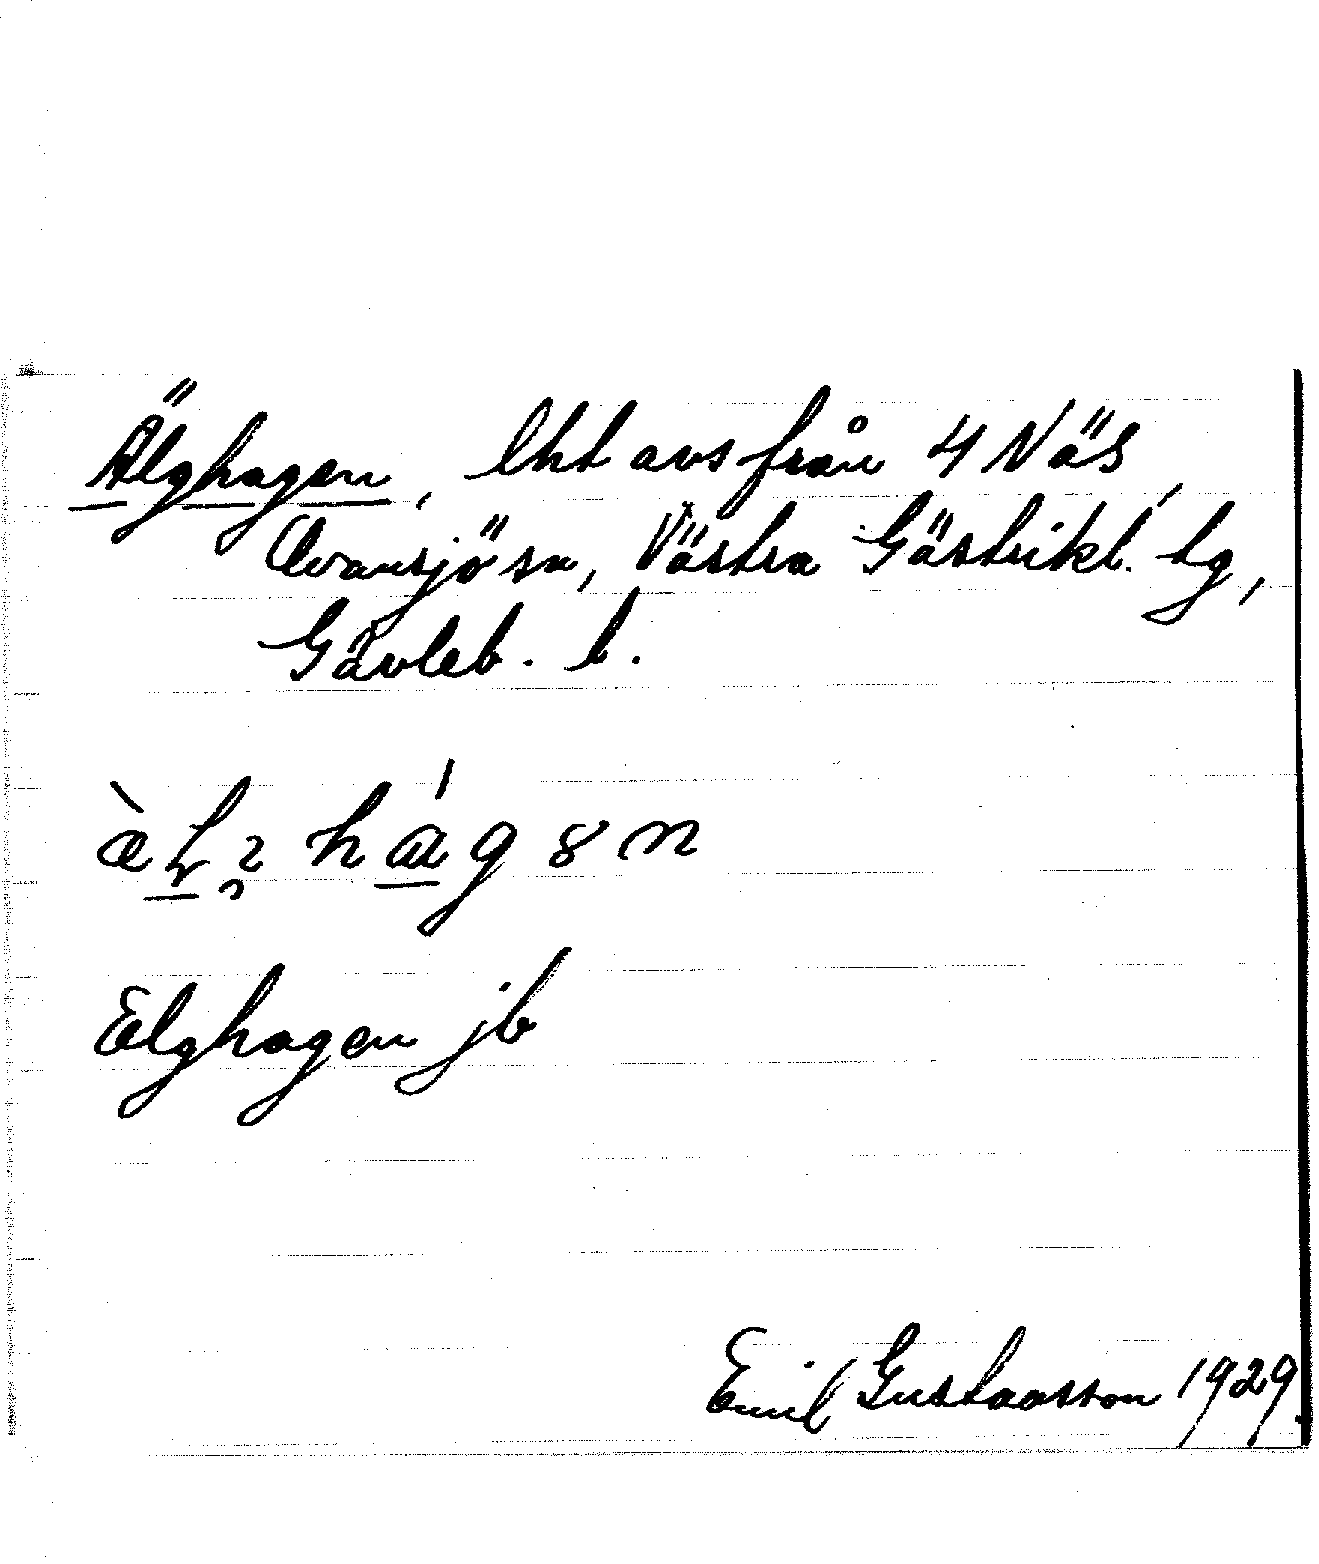 Älghagen, lht avs från 4 Näs,
Ovansjö sn, Västra Gästrikl. tg,
Gävleb. l.
hágən
Elghagen jb
Emil Gustavsson 1929.